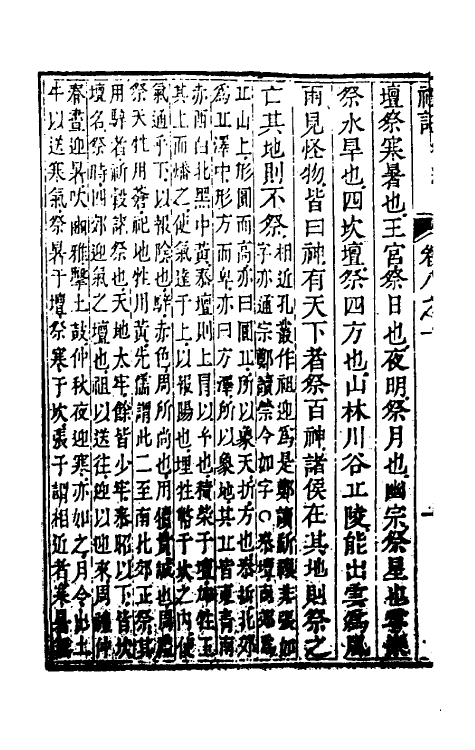 壇祭寒暑也王宮祭日也夜明祭月也幽宗祭星也雩禜
祭水旱也四坎壇祭四方也山林川谷丘陵能出雲爲風
雨見怪物皆曰神有天下者祭百神諸侯在其地則祭之
亡其地則不祭
相近孔叢作祖迎爲是鄭讀
字亦通宗鄭讀禜今如字○泰壇南郊爲
丘山上形圓而高亦曰圜丘所以象天折方也泰折北郊
爲丘澤中形方而卑亦曰方澤所以象地其丘皆東青南
赤西白北黑中黃泰壇則上冒以乎也積柴于壇加牲玉
其上而燔之使氣達于上以報陽也埋牲幣于坎之內使
氣通乎下以報陰也騂赤色周所尚也用犢貴誠也周禮
祭天牲用蒼祀地牲用黃先儒謂此二至南北郊正祭其
用騂者祈穀謝祭也天地太牢餘皆少牢泰昭以下皆坎
壇名祭時四郊迎氣之壇也祖以送往迎以迎來周禮仲
春晝迎暑吹豳雅擊土鼓仲秋夜迎寒亦如之月令出土
牛以送寒氣祭暑于壇祭寒于坎張子謂相近者寒暑
卷八之一